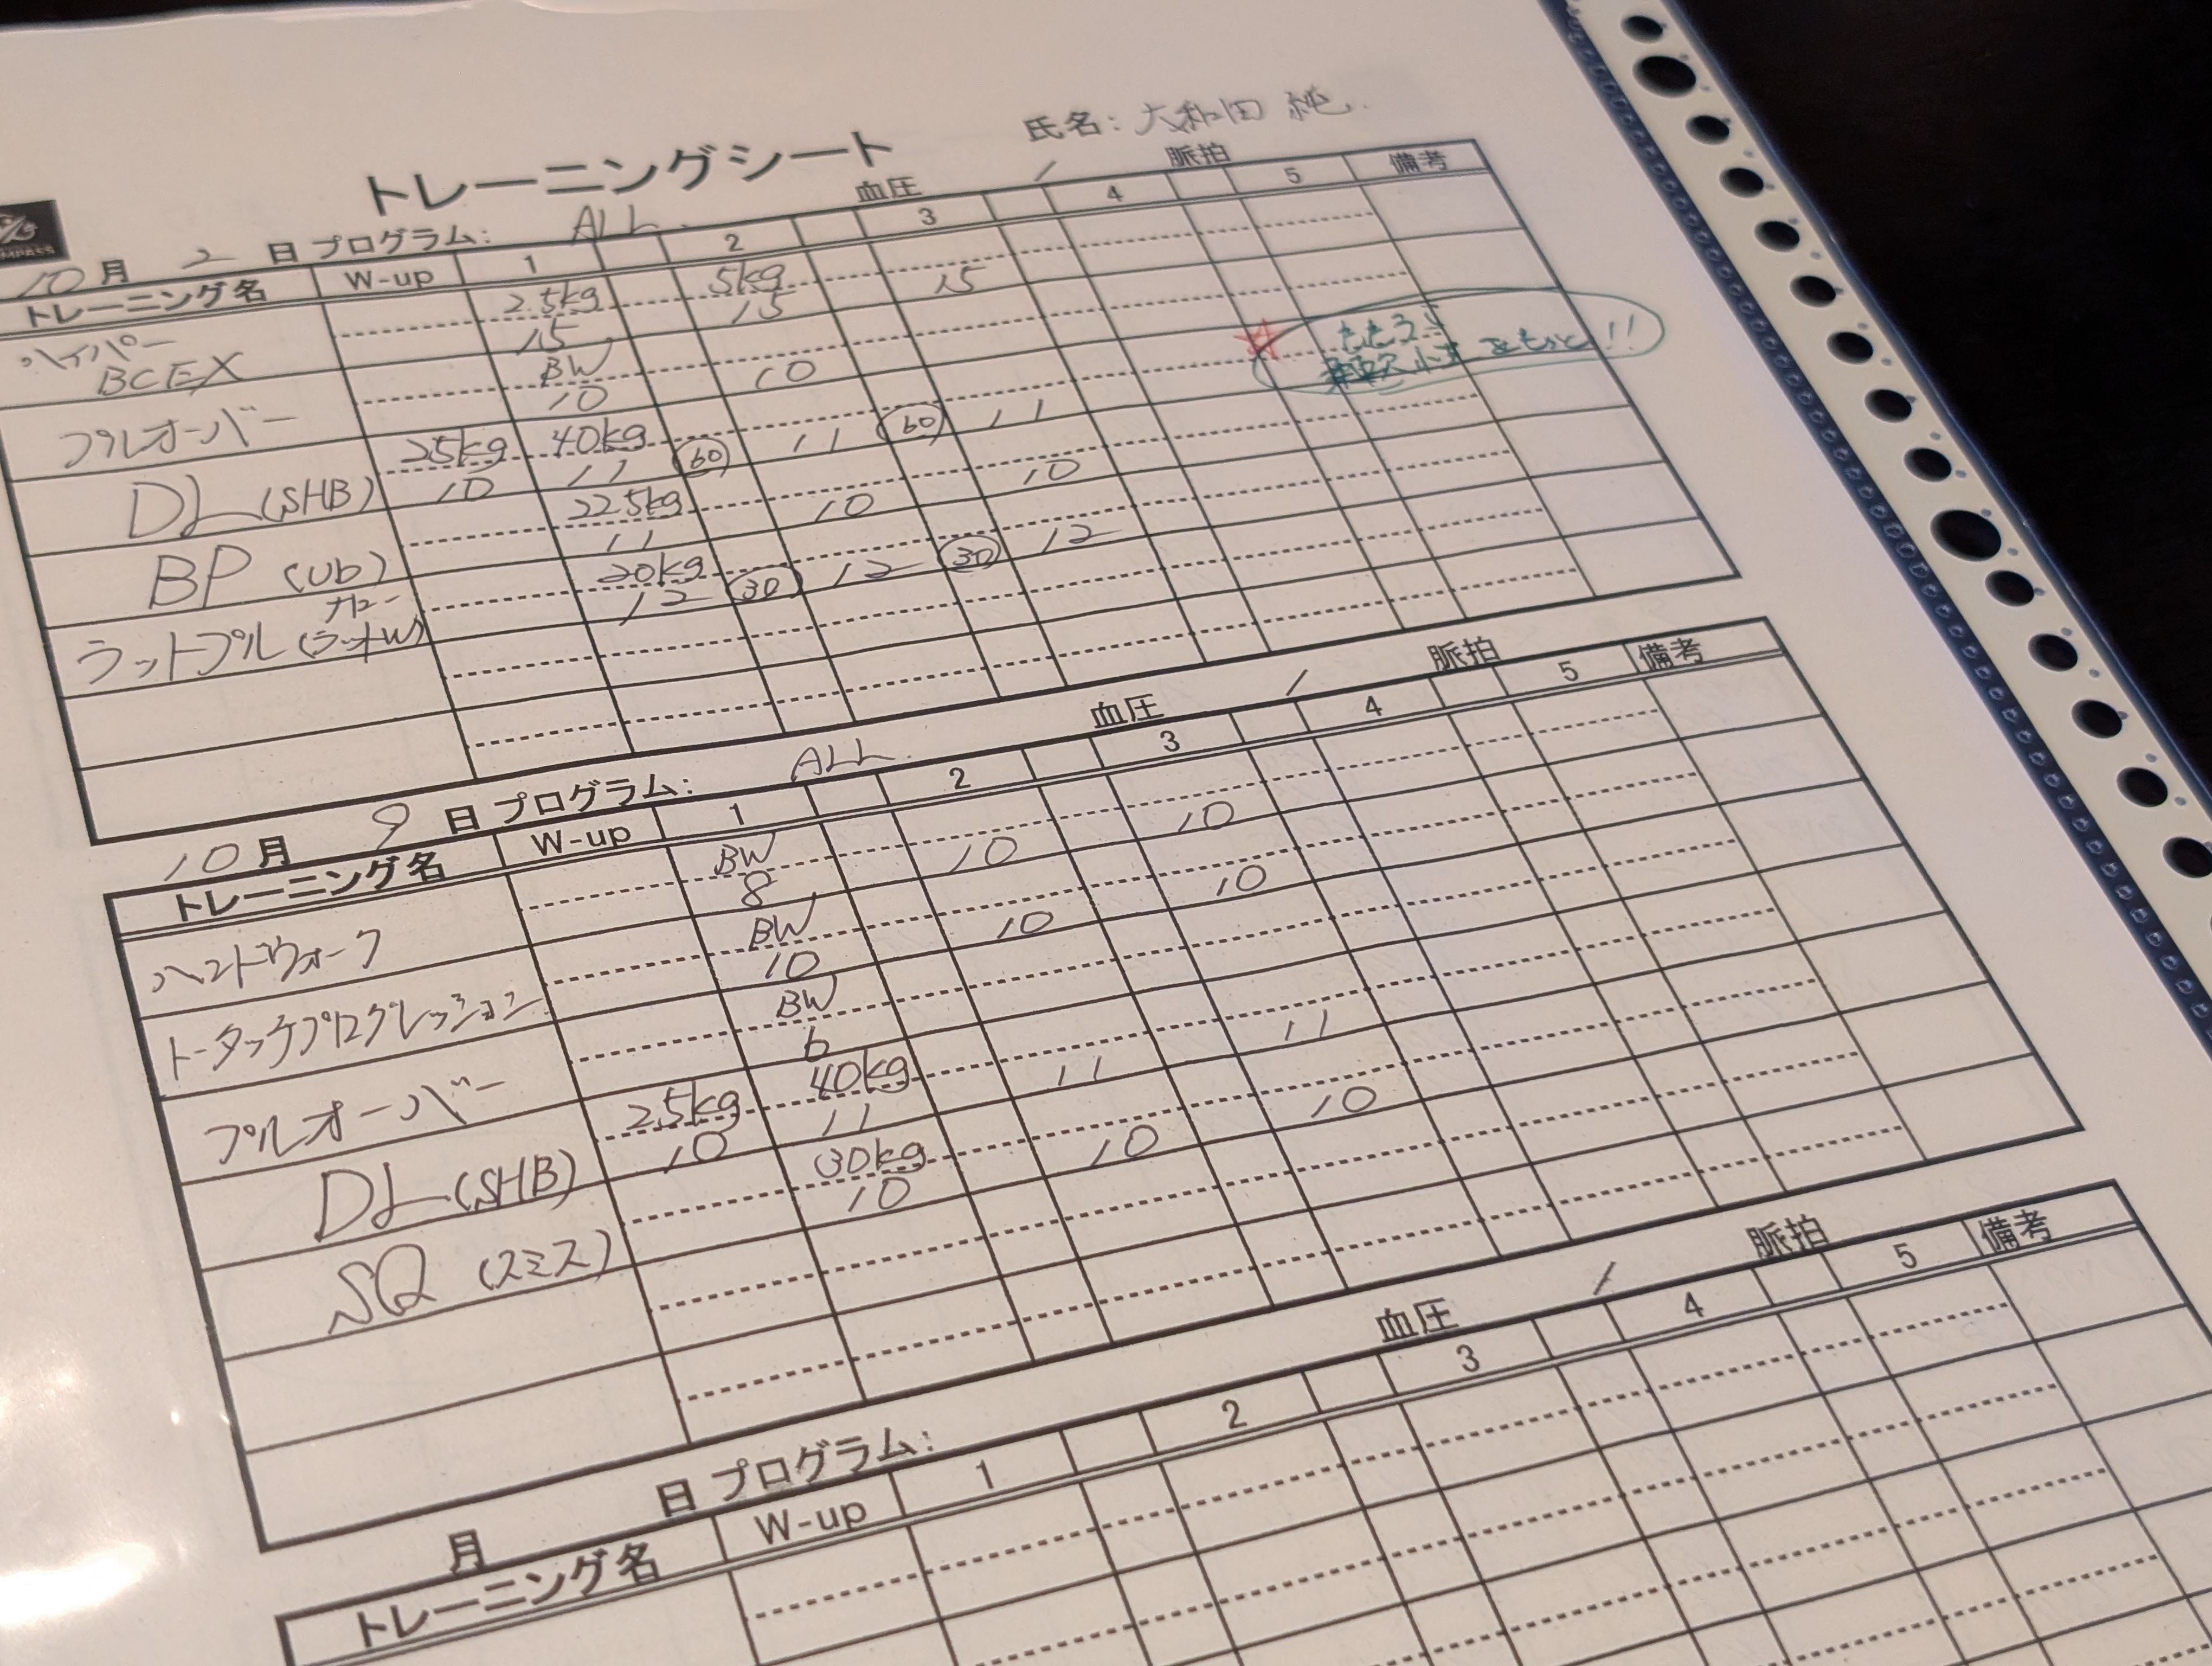 氏名: 大和田 純.
トレーニングシート
10月 2日 プログラム: ALL. 血圧 / 脈拍
トレーニング名 W-up 1 2 3 4 5 備考
ハイパー 2.5kg 5kg
BCEX 15 15 15
プルオーバー BW
10 10
DL (SHB) 25kg 40kg
10 11 60 11 60 11
BP (Ub) 22.5kg
11 10 10
ラットプル 20kg
12 30 12 30 12
ももうら
をもっと!!
10月 9日 プログラム: ALL. 血圧 / 脈拍
トレーニング名 W-up 1 2 3 4 5 備考
ハンドウォーク BW
8 10 10
トータッチプログレッション BW
10 10 10
プルオーバー BW
6
DL (SHB) 25kg 40kg
10 11 11 11
SQ (スミス) 30kg
10 10 10
月 日 プログラム: 血圧 / 脈拍
トレーニング名 W-up 1 2 3 4 5 備考